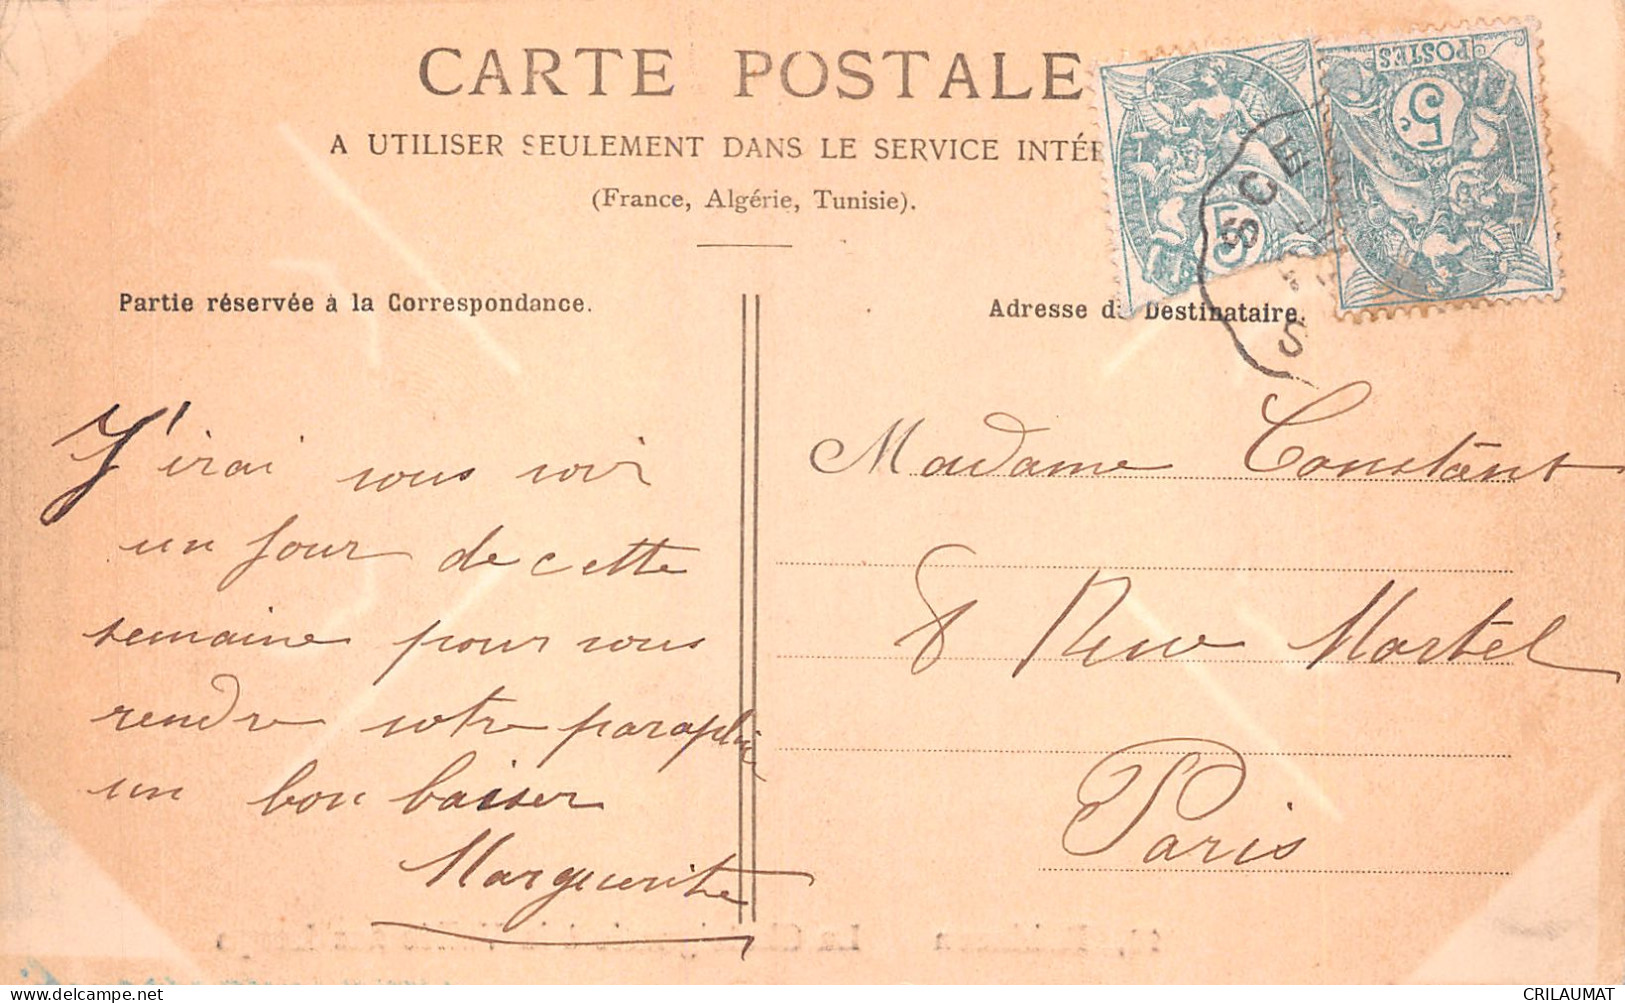 CARTE POSTALE
A UTILISER SEULEMENT DANS LE SERVICE INTÉR
(France, Algérie, Tunisie).
POSTES
5c
5
SCE
S
Partie réservée à la Correspondance.
Adresse du Destinataire.
J'irai vous voir
un jour de cette
semaine pour vous
rendre votre parapluie
un bon baiser
Marguerite
Madame Constant
8 Rue Martel
Paris
CRILAUMAT